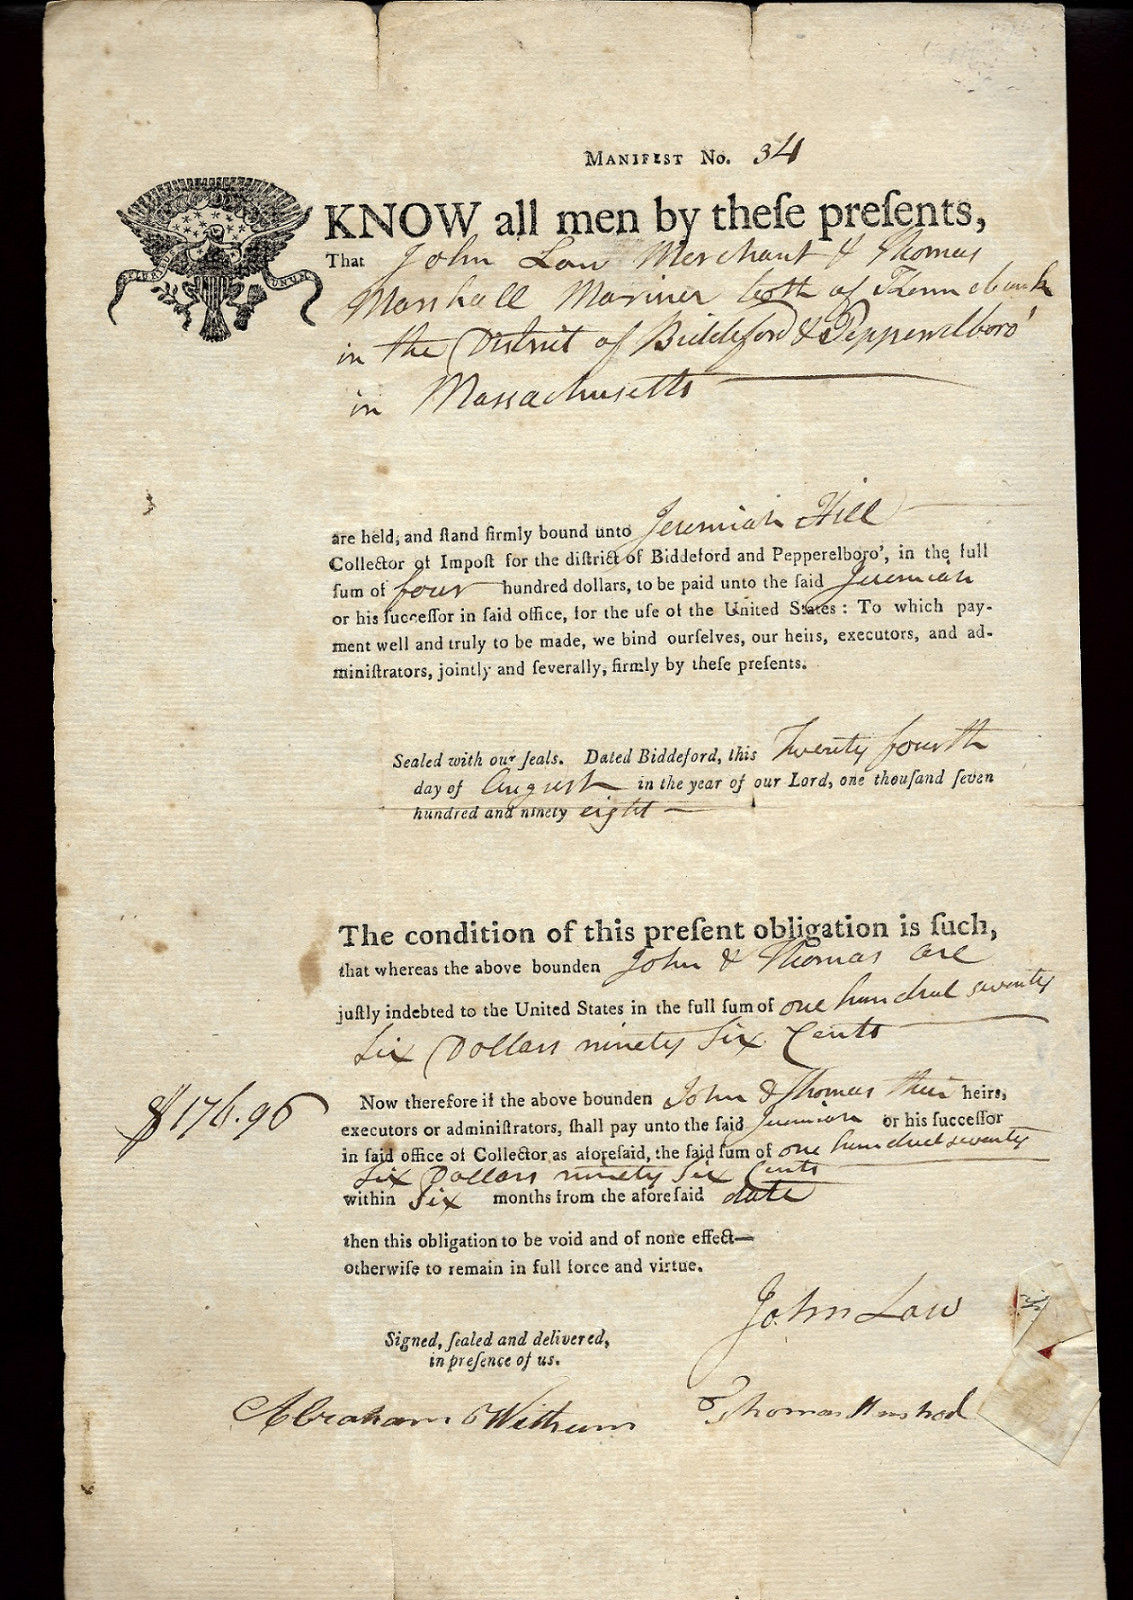 MANIFEST No. 34
KNOW all men by theſe preſents,
That John Low Merchant & Thomas
Marshall Mariner both of Kennebunk
in the District of Biddeford & Pepperelboro'
in Massachusetts
UNUM
are held, and ſtand firmly bound unto Jeremiah Hill
Collector of Impoſt for the diſtrict of Biddeford and Pepperelboro', in the full
ſum of four hundred dollars, to be paid unto the ſaid Jeremiah
or his ſucceſſor in ſaid office, for the uſe of the United States: To which pay-
ment well and truly to be made, we bind ourſelves, our heirs, executors, and ad-
miniſtrators, jointly and ſeverally, firmly by theſe preſents.
Sealed with our ſeals. Dated Biddeford, this Twenty fourth
day of August in the year of our Lord, one thouſand ſeven
hundred and ninety eight
The condition of this preſent obligation is ſuch,
that whereas the above bounden John & Thomas are
juſtly indebted to the United States in the full ſum of one hundred seventy
Six Dollars ninety Six Cents
$176.96
Now therefore if the above bounden John & Thomas their heirs,
executors or adminiſtrators, ſhall pay unto the ſaid Jeremiah or his ſucceſſor
in ſaid office of Collector as aforeſaid, the ſaid ſum of one hundred seventy
Six Dollars ninety Six Cents
within Six months from the aforeſaid date
then this obligation to be void and of none effect—
otherwiſe to remain in full force and virtue.
John Low
Signed, ſealed and delivered,
in preſence of us.
Abraham Withum
Thomas